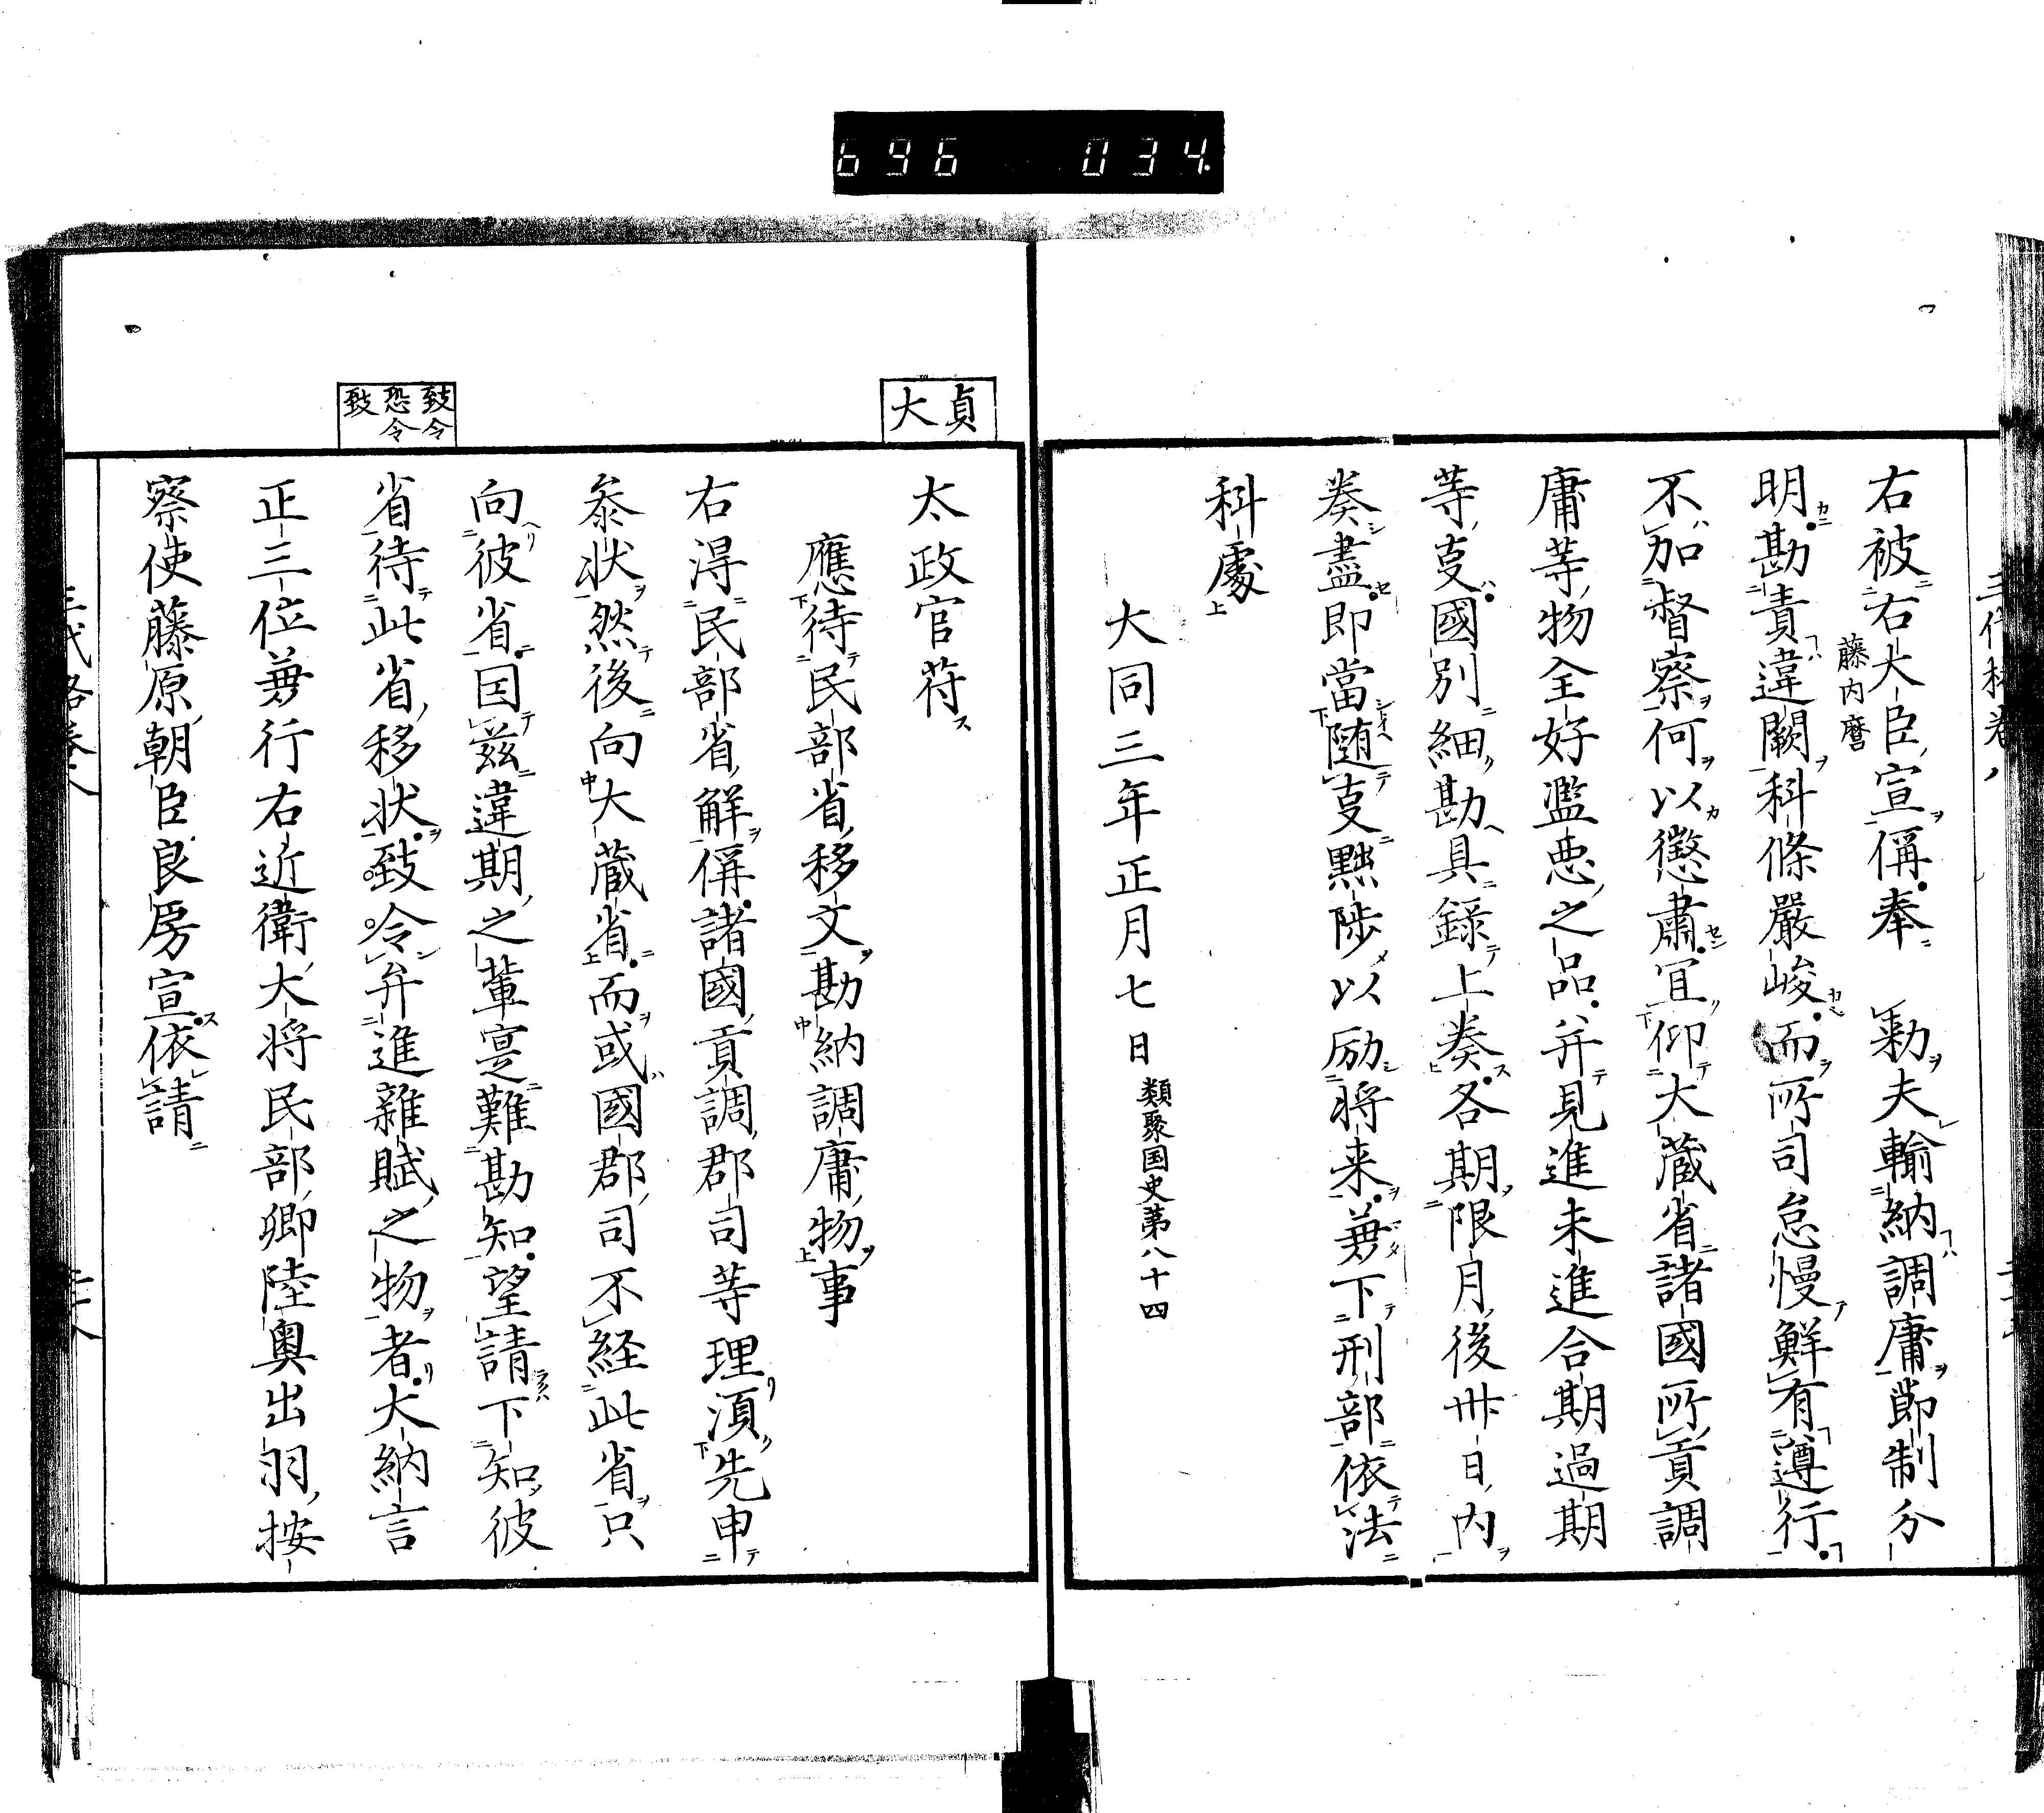 696 034
右被右大臣宣偁奉 勅夫輸納調庸節制分
藤内麿
明勘責違闕科條嚴峻而所司怠慢鮮有遵行
不加督察何以懲肅宜仰大蔵省諸國所貢調
庸等物全好濫悪之品并見進未進合期過期
等叓國別細勘具録上奏各期限月後卅日内
奏盡即當随叓黜陟以励将来兼下刑部依法
科處
大同三年正月七日 類聚国史第八十四
貞
大
太政官符
應待民部省移文勘納調庸物事
右得民部省解偁諸國貢調郡司等理湏先申
叅状然後向大蔵省而或國郡司不経此省只
向彼省因茲違期之輩寔難勘知望請下知彼
致令
恐令
致
省待此省移状致令弁進雜賦之物者大納言
正三位兼行右近衛大将民部卿陸奥出羽按
察使藤原朝臣良房宣依請